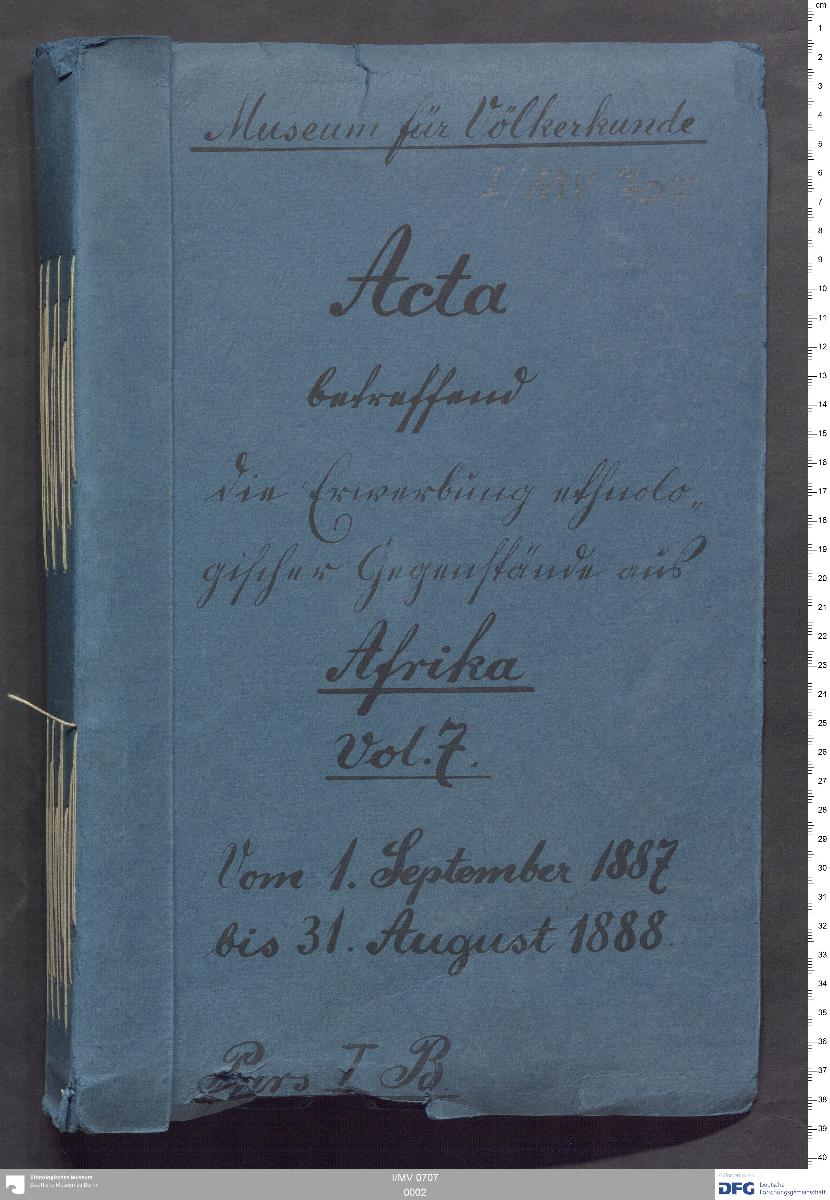 Museum für Völkerkunde
I/MV 707
Acta
betreffend
die Erwerbung ethnolo„
gischer Gegenstände aus
Afrika
Vol. 7.
Vom 1. September 1887
bis 31. August 1888.
Pars I B.
cm
1
2
3
4
5
6
7
8
9
10
11
12
13
14
15
16
17
18
19
20
21
22
23
24
25
26
27
28
29
30
31
32
33
34
35
36
37
38
39
40
Ethnologisches Museum
Staatliche Museen zu Berlin
I/MV 0707
0002
Gefördert durch
DFG Deutsche
Forschungsgemeinschaft